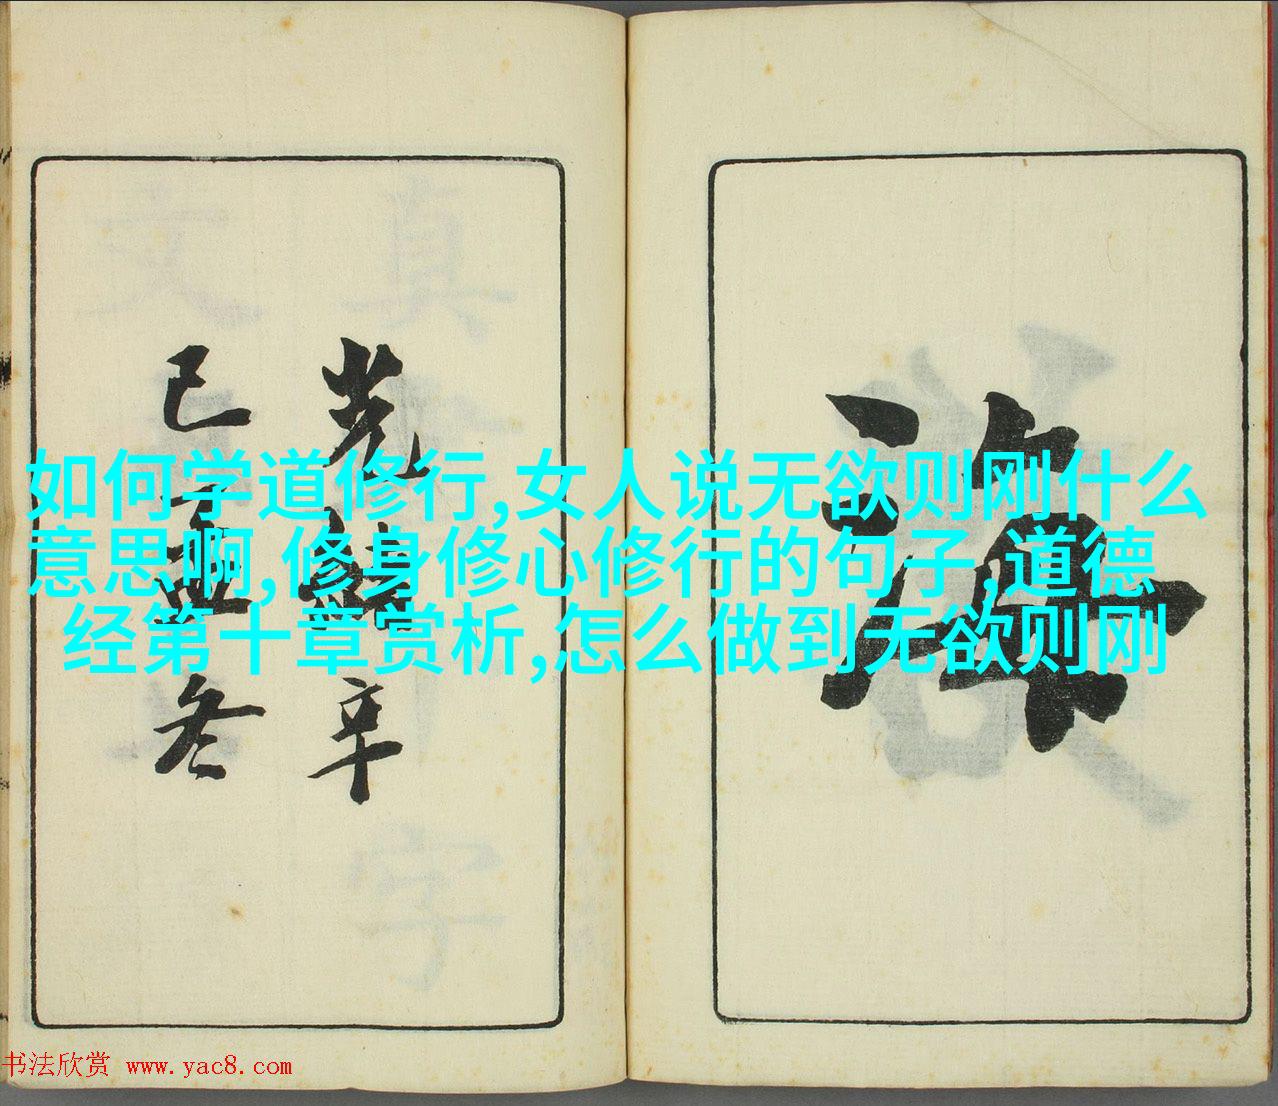 如何学道修行,女人说无欲则刚什么
意思啊,修身修心修行的句子,道德
经第十章赏析,怎么做到无欲则刚
海
光緒辛
巳孟冬
书法欣赏 www.yac8.com